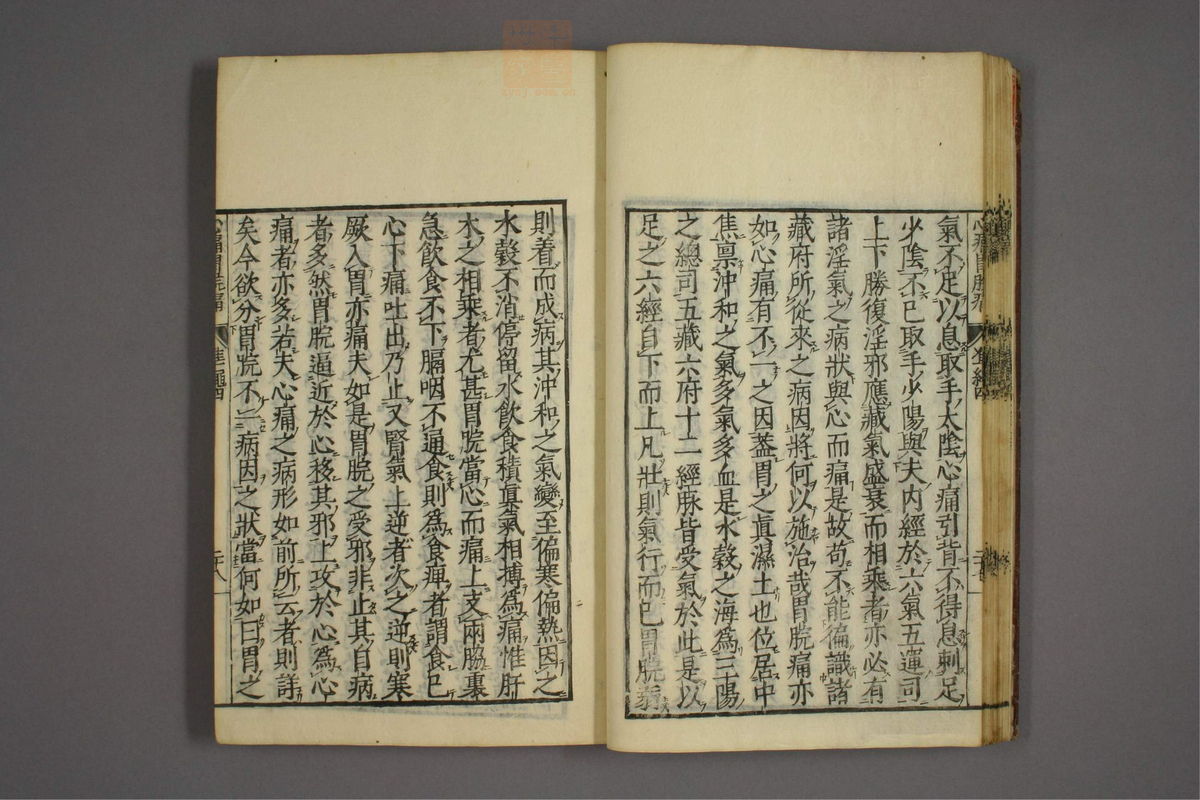 氣不足以息取手太陰心痛引背不得息刺足
少陰不已取手少陽與夫内經於六氣五運司
上下勝復淫邪應藏氣盛衰而相乘者亦必有
諸淫氣之病狀與心而痛是故苟不能徧識諸
藏府所從來之病因將何以施治哉胃脘痛亦
如心痛有不一之因葢胃之眞濕土也位居中
焦禀沖和之氣多氣多血是水穀之海爲三陽
之總司五藏六府十二經脉皆受氣於此是以
足之六經自下而上凡壯則氣行而已胃脘弱
則着而成病其沖和之氣變至偏寒偏熱因之
水穀不消停留水飲食積眞氣相搏爲痛惟肝
木之相乘者尤甚胃脘當心而痛上支兩脇裏
急飲食不下膈咽不通食則爲食痺者謂食已
心下痛吐出乃止又腎氣上逆者次之逆則寒
厥入胃亦痛夫如是胃脘之受邪非止其自病
者多然胃脘逼近於心移其邪上攻於心爲心
痛者亦多若夫心痛之病形如前所云者則詳
矣今欲分胃脘不一病因之狀當何如曰胃之
心痛胃脘痛 準繩四 二十八